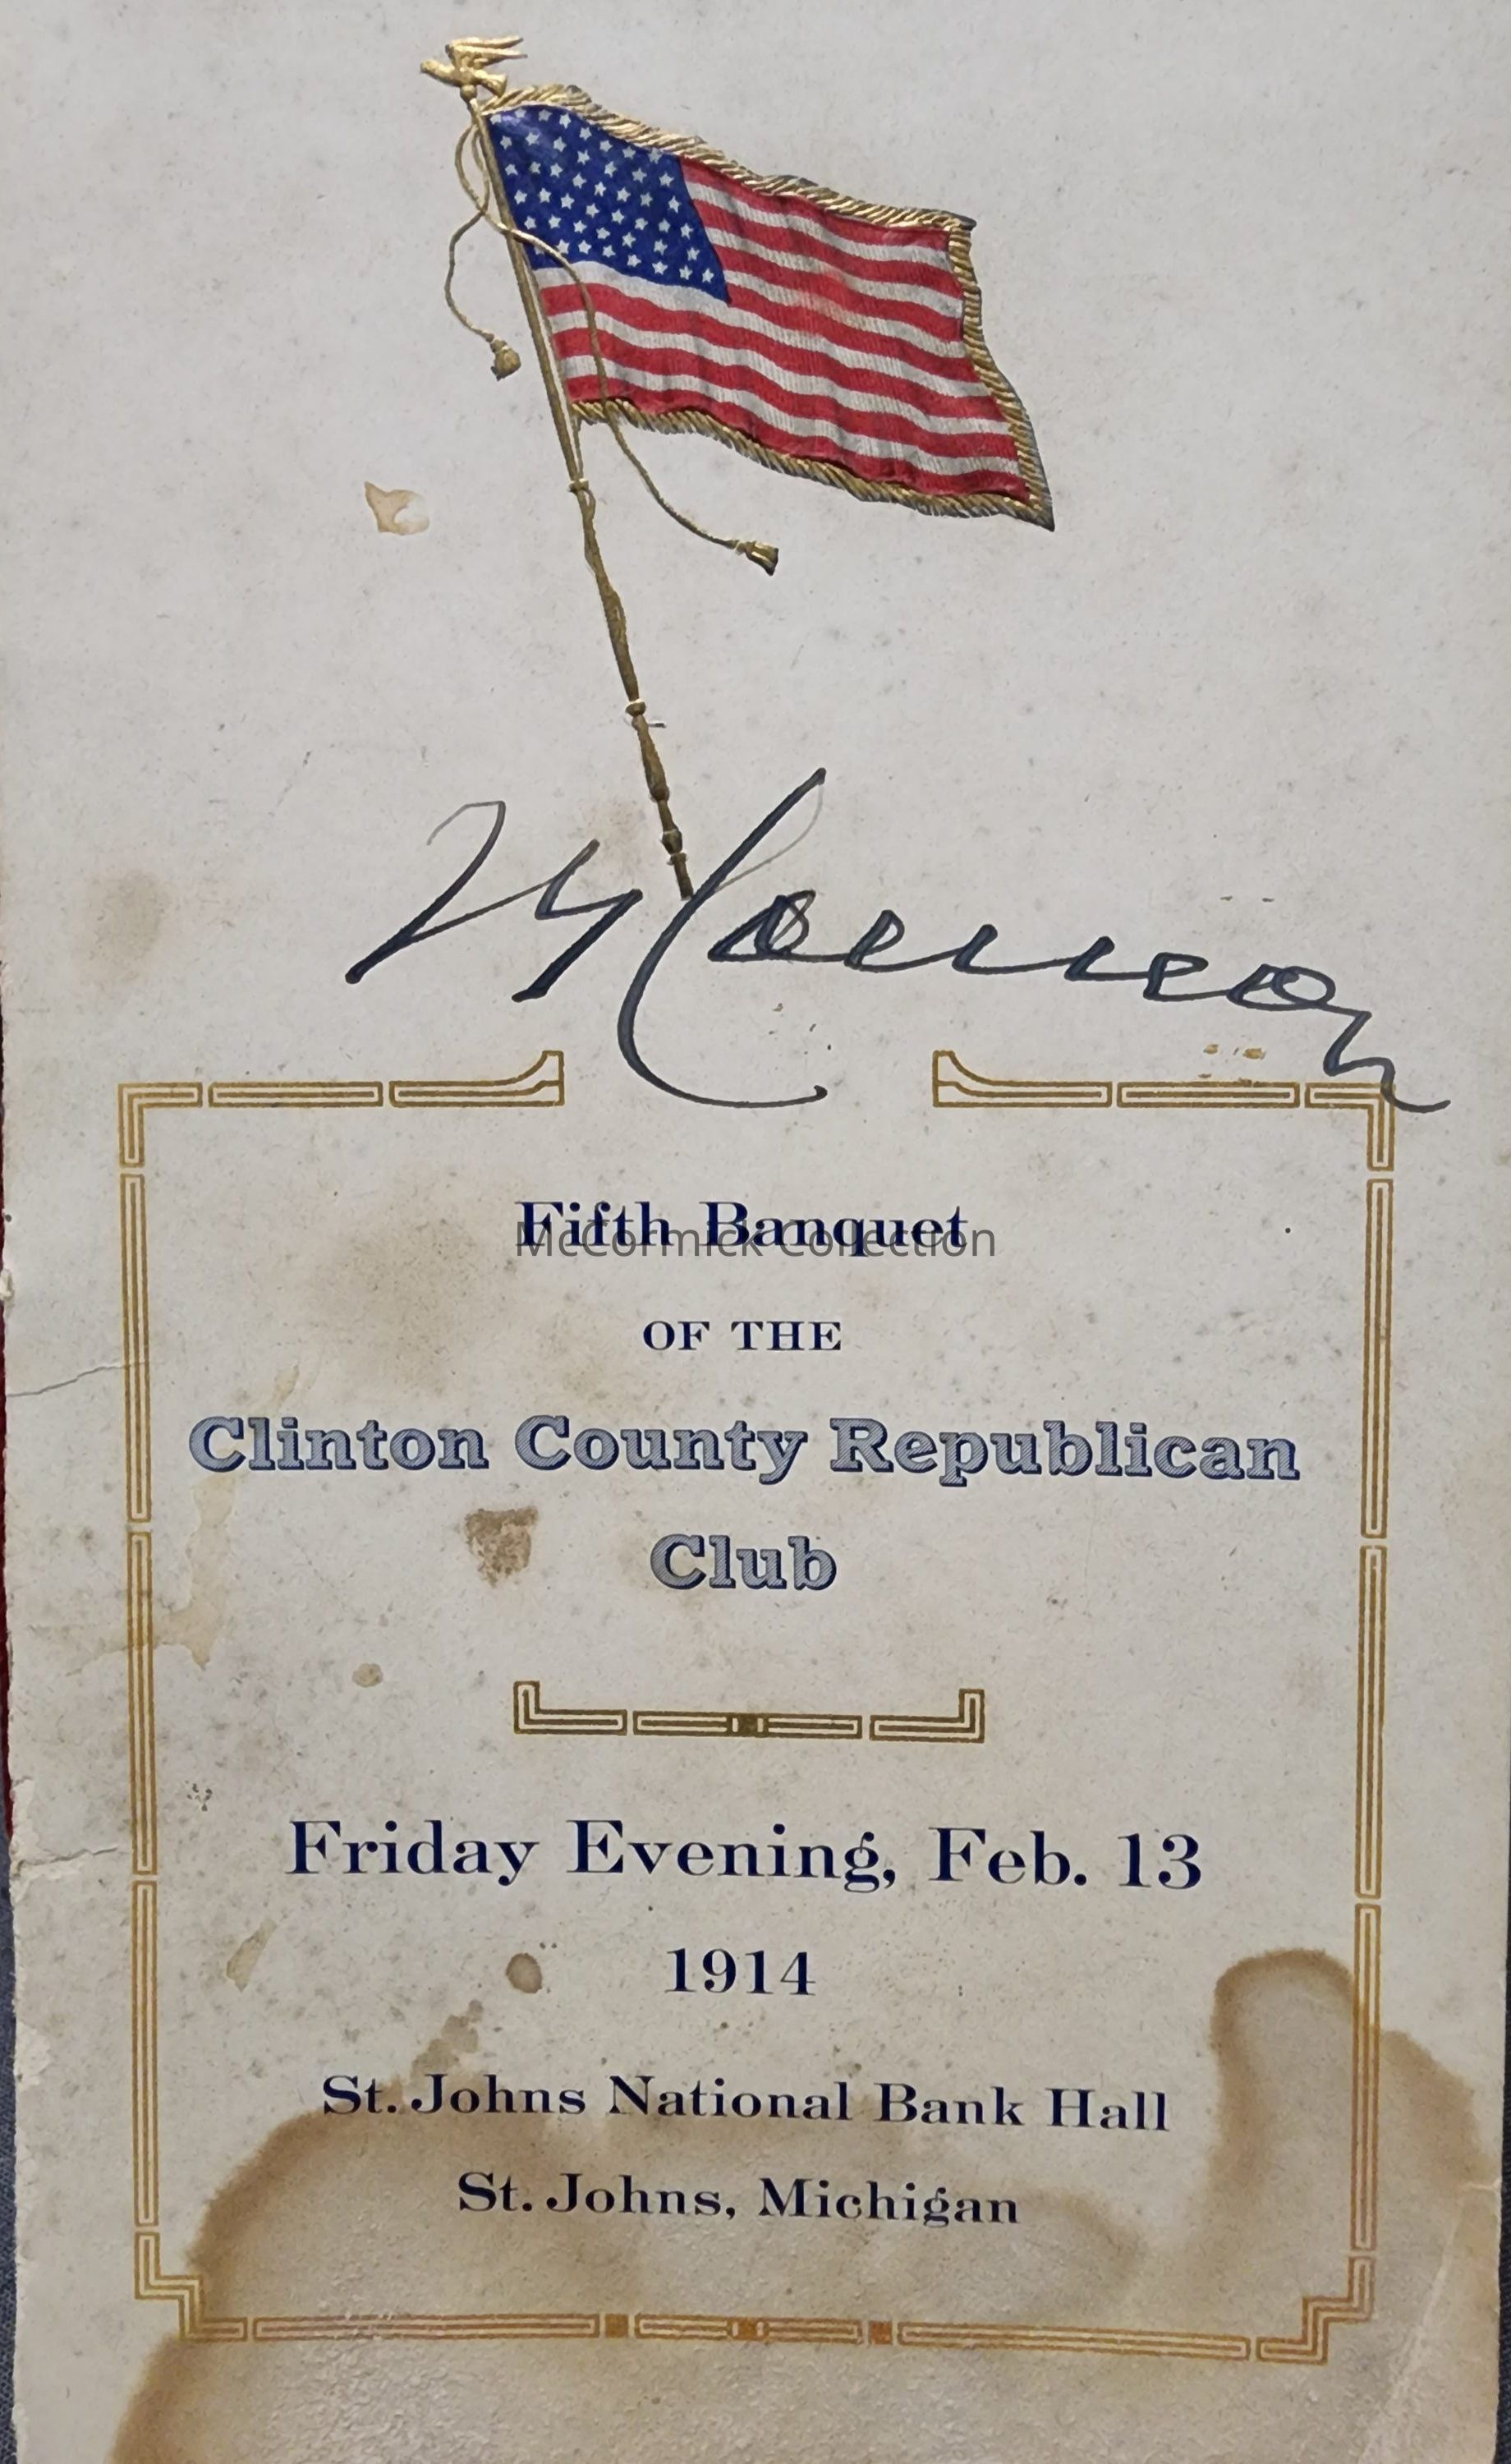 Fifth Banquet
McCormick Collection
OF THE
Clinton County Republican
Club
Friday Evening, Feb. 13
1914
St. Johns National Bank Hall
St. Johns, Michigan